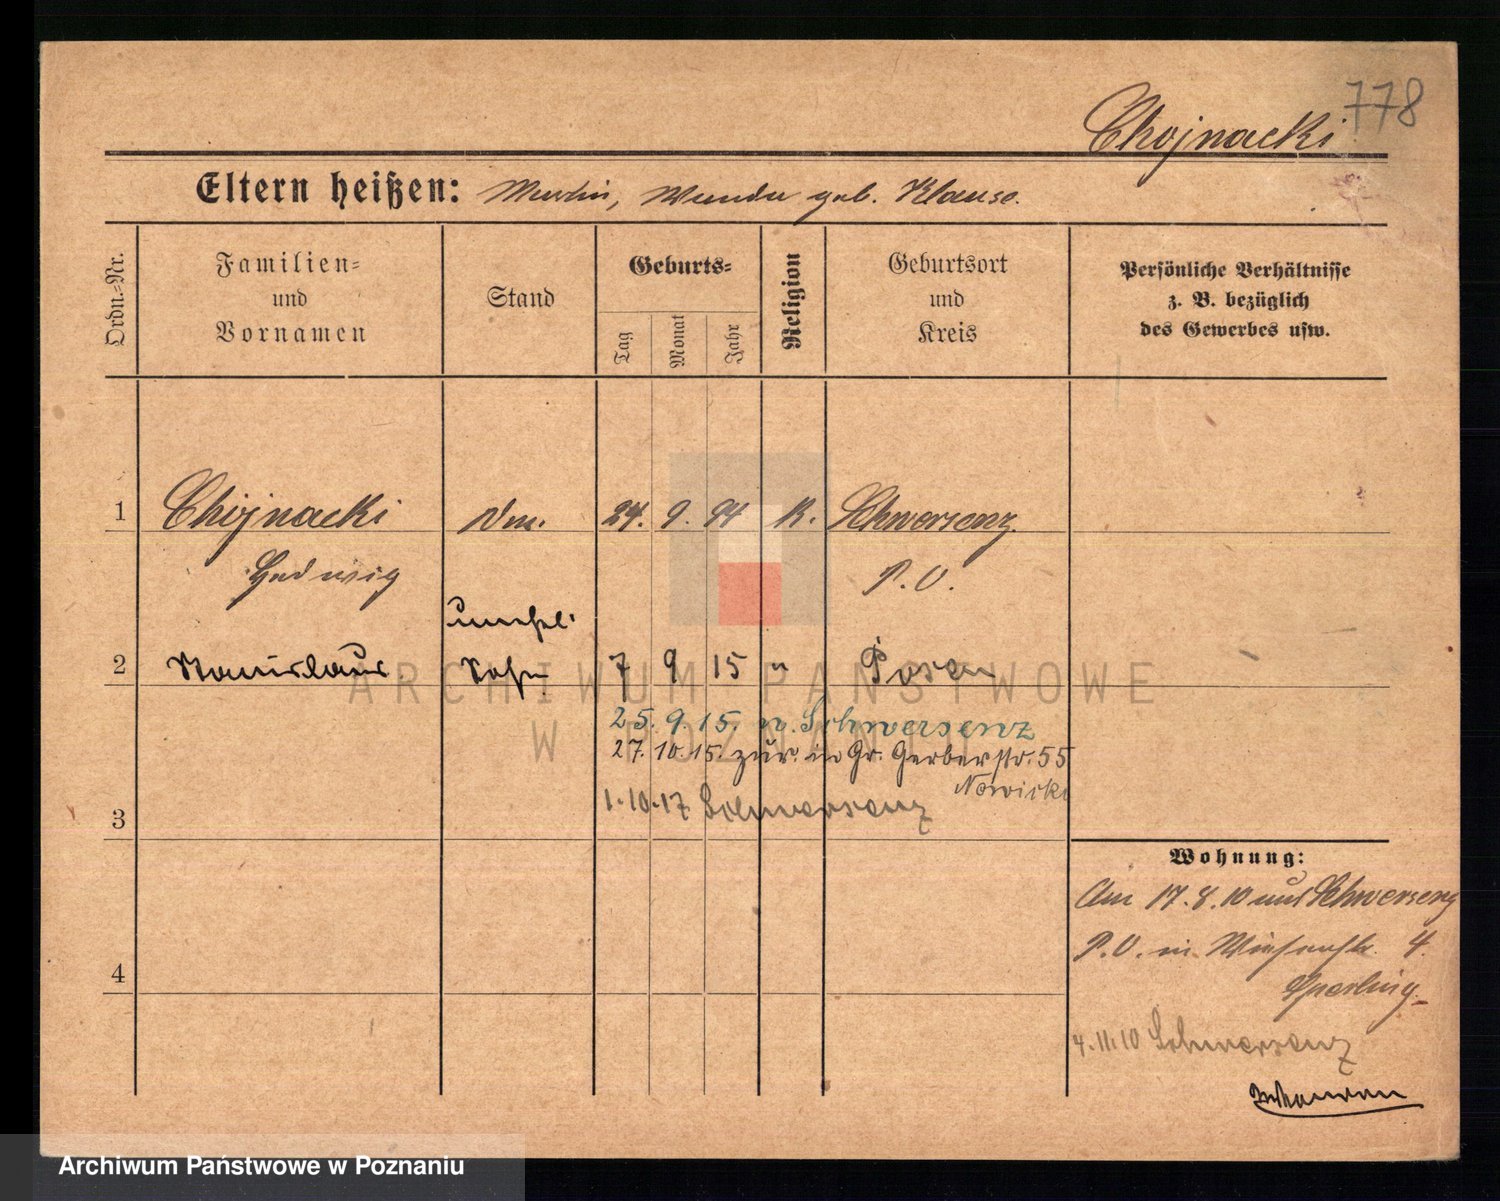 778
Chojnacki
Eltern heißen: Martin, Wanda geb. Klause.
Ordn.-Nr.
Familien-
und
Vornamen
Stand
Geburts-
Tag
Monat
Jahr
Religion
Geburtsort
und
Kreis
Persönliche Verhältnisse
z. B. bezüglich
des Gewerbes usw.
1 Chojnacki 24. 9. 94 K. Schwersenz
Hedwig P. O.
unehel.
2 Stanislaus Sohn 7 9 15 " Posen
25. 9. 15. n. Schwersenz
27. 10. 15. zur. in Gr. Gerberstr. 55
Nowicki
3 1.10.17 Schwersenz
Wohnung:
Am 17.8.10 aus Schwersenz
P. O. in Wiesenstr. 4.
Sperling.
4
4.11.10 Schwersenz
ARCHIWUM PAŃSTWOWE
W POZNANIU
Archiwum Państwowe w Poznaniu